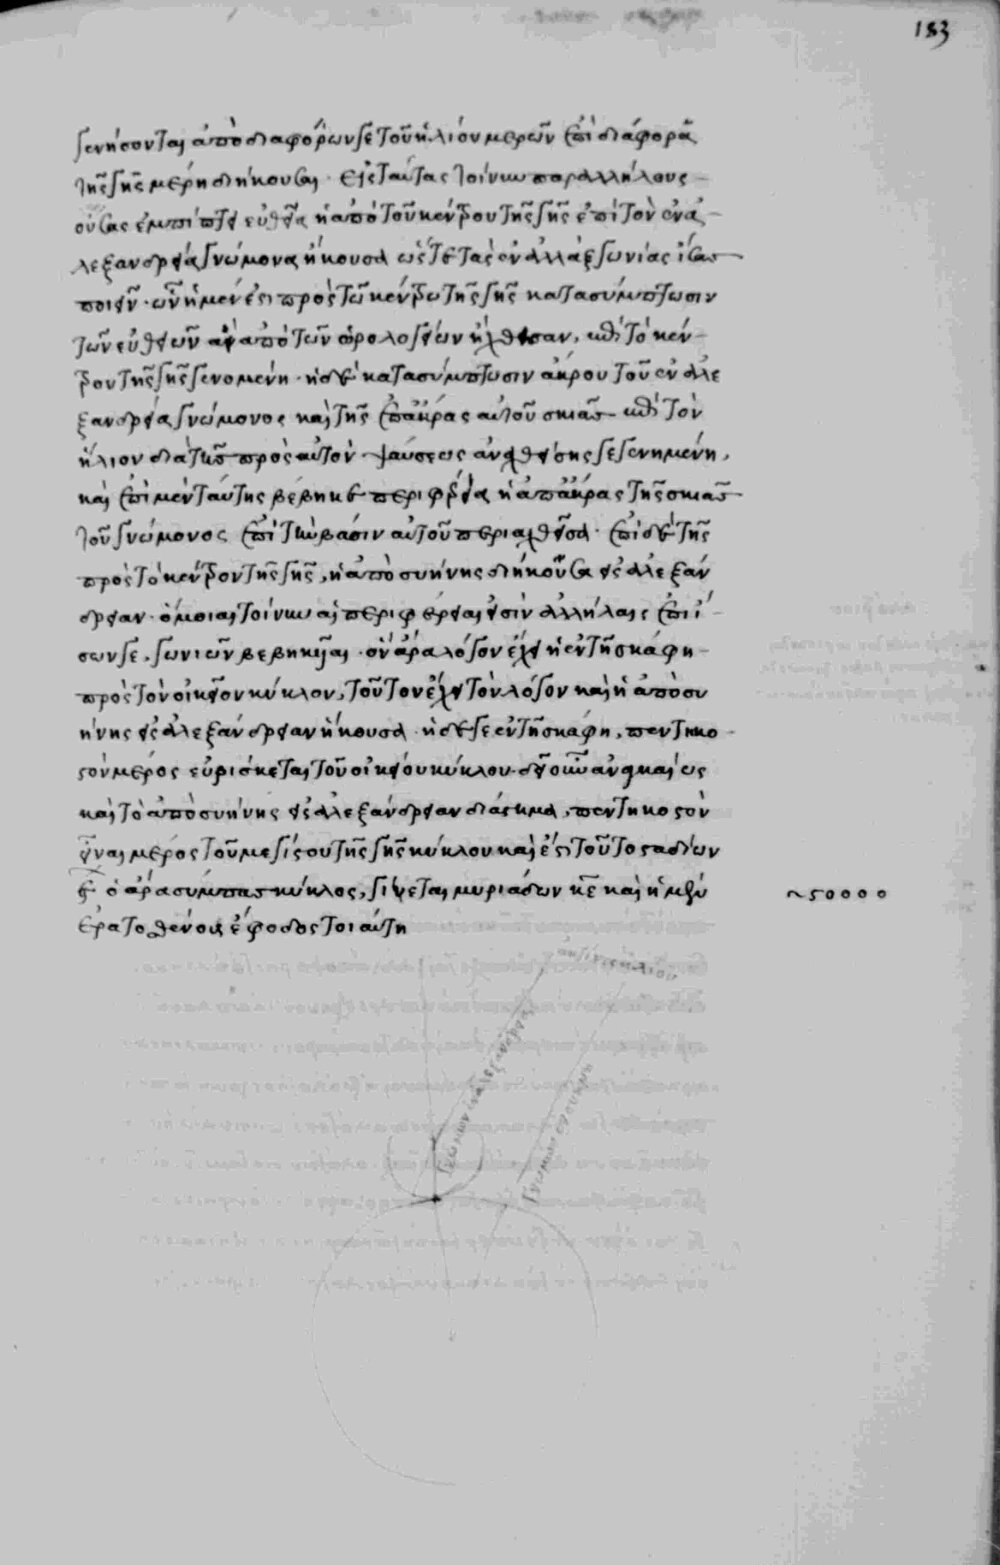 183
γενήσονται ἀπὸ διαφόρων γε τοῦ ἡλίου μερῶν ἐπὶ διάφορα
τῆς γῆς μέρη διήκουσαι· εἰς ταύτας τοίνυν παραλλήλους
οὔσας ἐμπίπτει εὐθεῖα ἡ ἀπὸ τοῦ κέντρου τῆς γῆς ἐπὶ τὸν ἐν ἀ
λεξανδρείᾳ γνώμονα ἥκουσα ὥστε τὰς ἐναλλὰξ γωνίας ἴσας
ποιεῖν· ὧν ἡ μέν ἐστι πρὸς τῷ κέντρῳ τῆς γῆς κατὰ σύμπτωσιν
τῶν εὐθειῶν αἳ ἀπὸ τῶν ὡρολογείων ἤχθησαν, ἐπὶ τὸ κέν
τρον τῆς γῆς γενομένη· ἡ δὲ κατὰ σύμπτωσιν ἄκρου τοῦ ἐν ἀλε
ξανδρείᾳ γνώμονος καὶ τῆς ἐπ' ἄκρας αὐτοῦ σκιᾶς ἐπὶ τὸν
ἥλιον διὰ τῆς πρὸς αὐτὸν ψαύσεως ἀναχθείσης γεγενημένη,
καὶ ἐπὶ μὲν ταύτης βέβηκε περιφέρεια ἡ ἀπ' ἄκρας τῆς σκιᾶς
τοῦ γνώμονος ἐπὶ τὴν βάσιν αὐτοῦ περιαχθεῖσα· ἐπὶ δὲ τῆς
πρὸς τὸ κέντρον τῆς γῆς, ἡ ἀπὸ συήνης διήκουσα εἰς ἀλεξάν
δρειαν· ὅμοιαι τοίνυν αἱ περιφέρειαι εἰσὶν ἀλλήλαις ἐπὶ ἴ
σων γε, γωνιῶν βεβηκυῖαι· ὃν ἄρα λόγον ἔχει ἡ ἐν τῇ σκάφῃ
πρὸς τὸν οἰκεῖον κύκλον, τοῦτον ἔχει τὸν λόγον καὶ ἡ ἀπὸ συ
ήνης εἰς ἀλεξάνδρειαν ἥκουσα· ἡ δέ γε ἐν τῇ σκάφῃ, πεντηκο
στὸν μέρος εὑρίσκεται τοῦ οἰκείου κύκλου· δεῖ οὖν ἀναγκαίως
καὶ τὸ ἀπὸ συήνης εἰς ἀλεξάνδρειαν διάστημα, πεντηκοστὸν
εἶναι μέρος τοῦ μεγίστου τῆς γῆς κύκλου καὶ ἔστι τοῦτο σταδίων
͵ε ὁ ἄρα σύμπας κύκλος, γίνεται μυριάδων κε καὶ ἡ μὲν
ἐρατοσθένους ἔφοδος τοιαύτη
~50000
ἀκτὶς ἡλίου
γνώμων ἐν ἀλεξανδρείᾳ
γνώμων ἐν συήνῃ